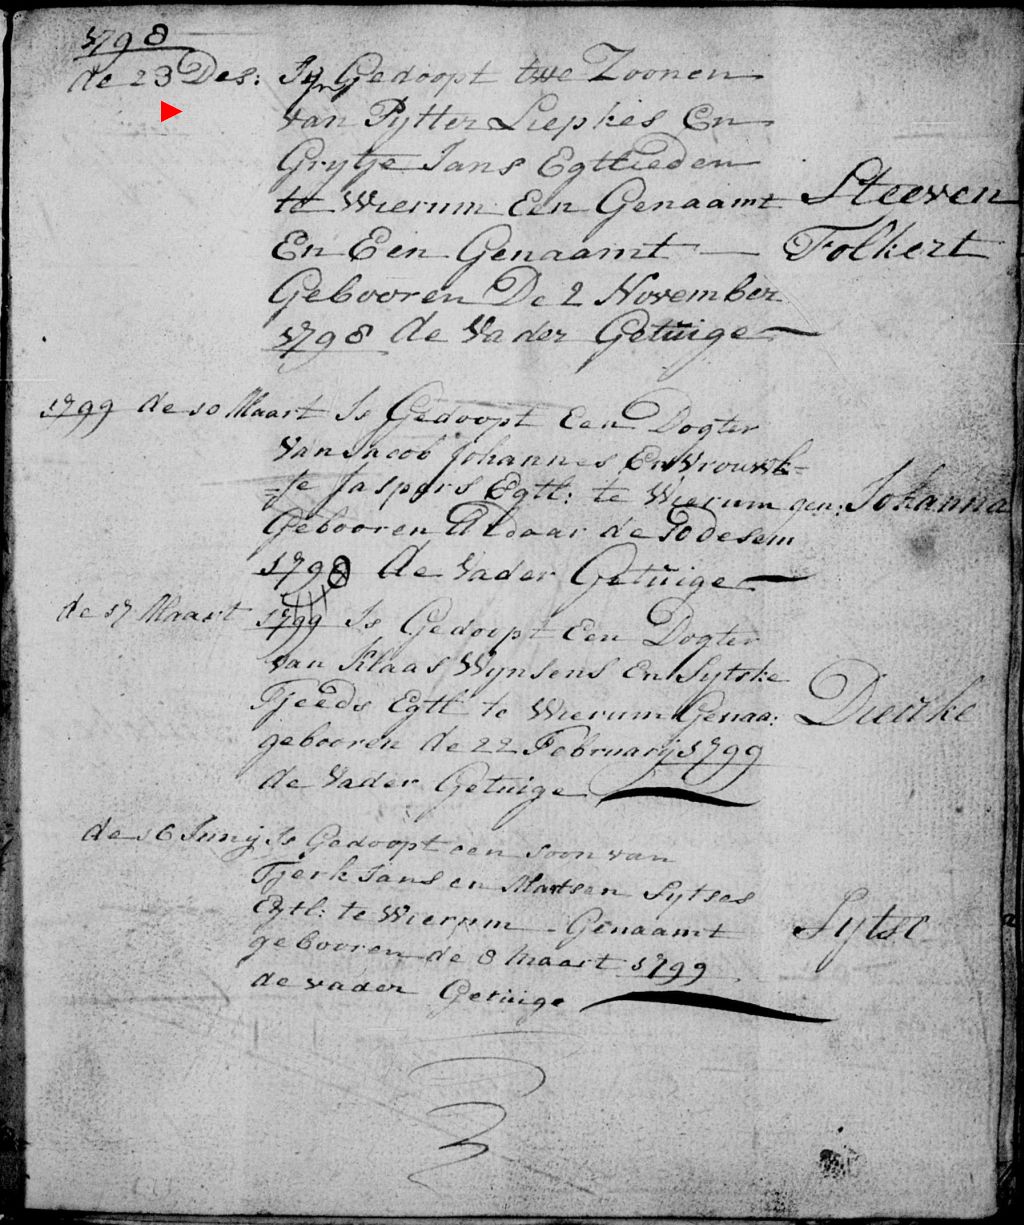 1798
de 23 Des: Zyn Gedoopt twe Zoonen
van Pytter Liepkes En
Grytje Jans Egtlieden
te Wierum Een Genaamt Steeven
En Een Genaamt — Folkert
Gebooren De 2 November
1798 de Vader Getuige
1799 de 10 Maart Is Gedoopt Een Dogter
Van Jacob Johannes En Vrouwk-
-je Jaspers Egtl: te Wierum gen: Johanna
Gebooren Aldaar de 10 desem
1798 de Vader Getuige
de 17 Maart 1799 Is Gedoopt Een Dogter
van Klaas Wynsens En Sytske
Tjeeds Egtl te Wierum Genaa: Dieuke
gebooren de 22 February 1799
de Vader Getuige
de 16 Junij Is Gedoopt een soon van
Tjerk Jans en Martsen Sytses
Egtl: te Wierum Genaamt Sytse
gebooren de 8 Maart 1799
de vader Getuige